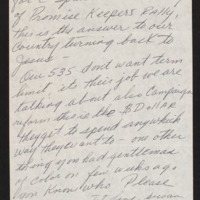 of Promise Keepers Rally,
this is the answer to our
Country turning back to
Jesus -
Our 535 dont want term
limit, its their job we are
talking about also Campaign
reform this is the $ Dollar
they get to spend anywhich
way they want to - one other
thing you had gentleman
of color on few weeks ago,
you Know who Please